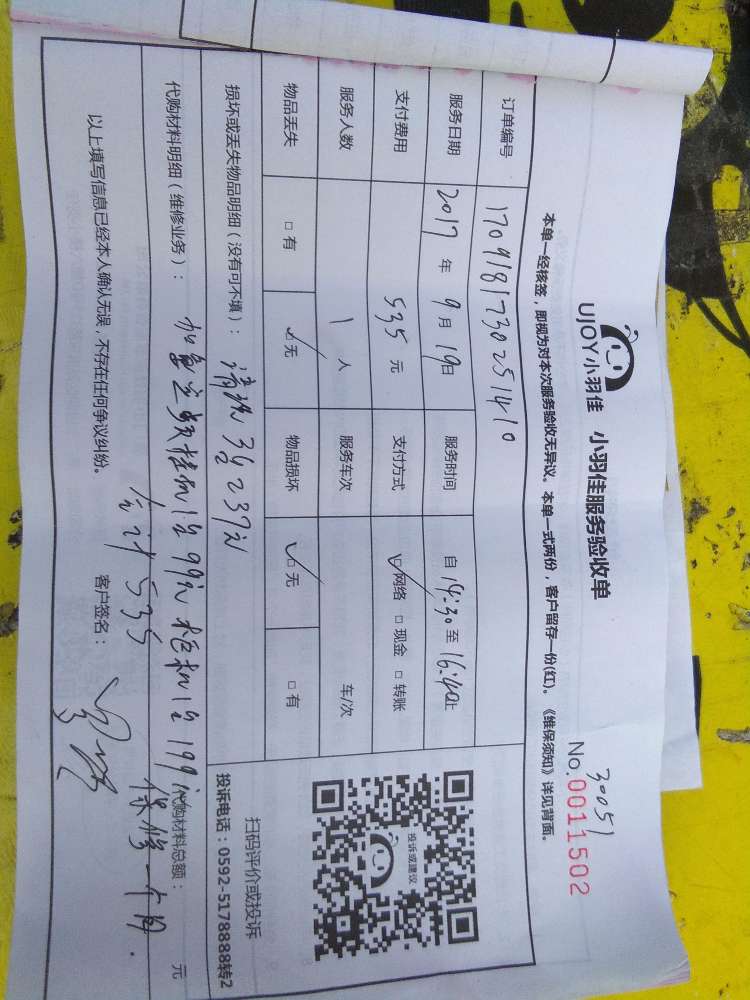 UJOY小羽佳 小羽佳服务验收单
30051
No.0011502
本单一经核签，即视为对本次服务验收无异议。本单一式两份，客户留存一份(红)。《维保须知》详见背面。
订单编号 1709181730251410
服务日期 2017年9月19日 服务时间 自14:30至16:40止
支付费用 535元 支付方式 ☑网络 □现金 □转账
服务人数 1人 服务车次 车/次
物品丢失 □有 ☑无 物品损坏 ☑无 □有
损坏或丢失物品明细（没有可不填）：清洗3台237元
代购材料明细（维修业务）：加氟变频挂机1台99元柜机1台199元 代购材料总额： 元
合计535 保修一个月.
以上填写信息已经本人确认无误，不存在任何争议纠纷。 客户签名：
投诉或建议
扫码评价或投诉
投诉电话：0592-5178888转2